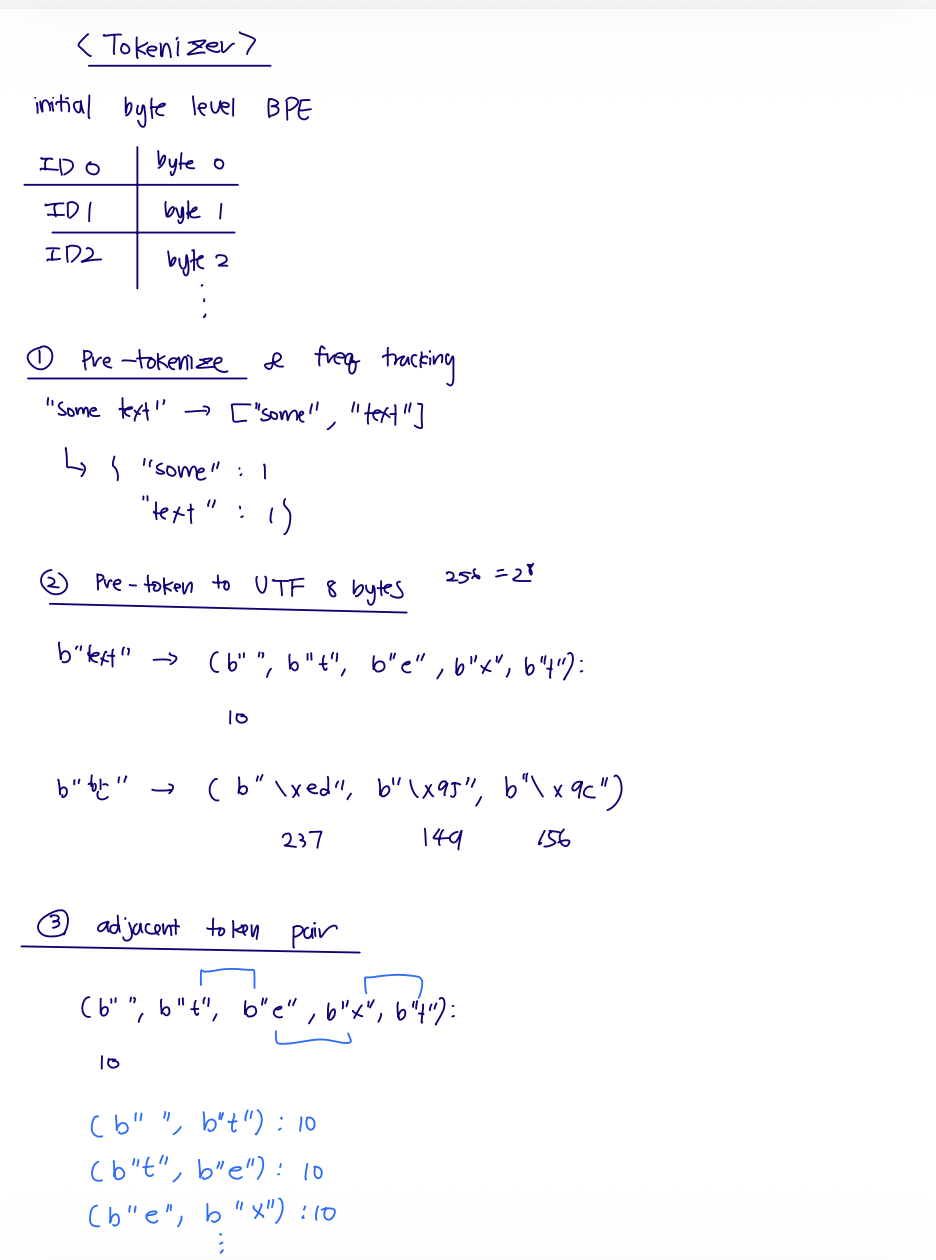 < Tokenizer >
initial byte level BPE
ID 0 byte 0
ID 1 byte 1
ID2 byte 2
① Pre-tokenize & freq tracking
"some text" → ["some", "text"]
↳ { "some" : 1
"text" : 1}
② Pre-token to UTF 8 bytes 256 = 2⁸
b"text" → (b" ", b"t", b"e", b"x", b"t"):
10
b"한" → ( b"\xed", b"\x95", b"\x9c")
237 149 156
③ adjacent token pair
(b" ", b"t", b"e", b"x", b"t"):
10
(b" ", b"t") : 10
(b"t", b"e") : 10
(b"e", b"x") : 10